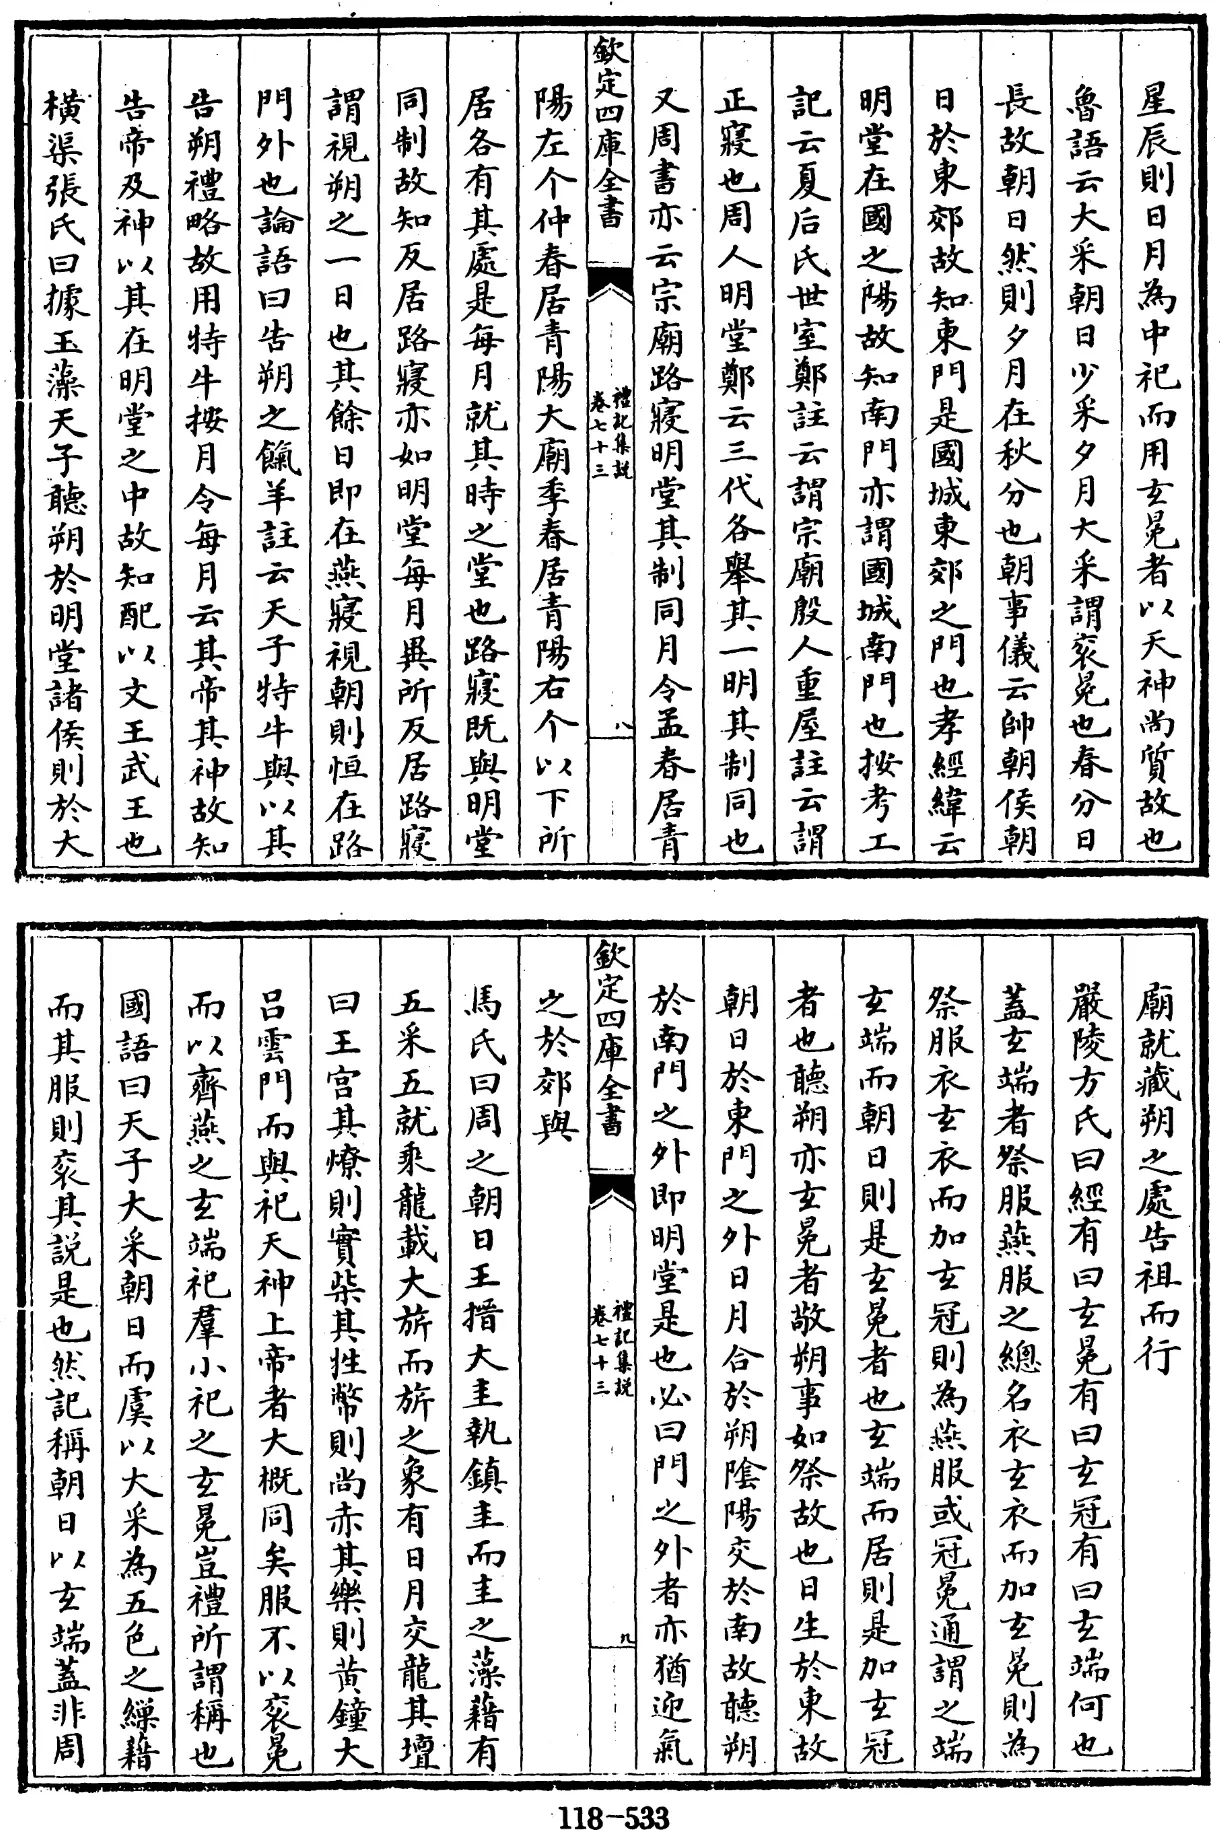 星辰則日月為中祀而用玄冕者以天神尚質故也
魯語云大采朝日少采夕月大采謂衮冕也春分日
長故朝日然則夕月在秋分也朝事儀云帥朝侯朝
日於東郊故知東門是國城東郊之門也孝經緯云
明堂在國之陽故知南門亦謂國城南門也按考工
記云夏后氏世室鄭註云謂宗廟殷人重屋註云謂
正寢也周人明堂鄭云三代各舉其一明其制同也
又周書亦云宗廟路寢明堂其制同月令孟春居青
欽定四庫全書
禮記集說
卷七十三
八
陽左个仲春居青陽大廟季春居青陽右个以下所
居各有其處是每月就其時之堂也路寢既與明堂
同制故知反居路寢亦如明堂每月異所反居路寢
謂視朔之一日也其餘日即在燕寢視朝則恒在路
門外也論語曰告朔之餼羊註云天子特牛與以其
告朔禮略故用特牛按月令每月云其帝其神故知
告帝及神以其在明堂之中故知配以文王武王也
橫渠張氏曰據玉藻天子聽朔於明堂諸侯則於大
廟就藏朔之處告祖而行
嚴陵方氏曰經有曰玄冕有曰玄冠有曰玄端何也
蓋玄端者祭服燕服之總名衣玄衣而加玄冕則為
祭服衣玄衣而加玄冠則為燕服或冠冕通謂之端
玄端而朝日則是玄冕者也玄端而居則是加玄冠
者也聽朔亦玄冕者敬朔事如祭故也日生於東故
朝日於東門之外日月合於朔陰陽交於南故聽朔
於南門之外即明堂是也必曰門之外者亦猶迎氣
欽定四庫全書
禮記集說
卷七十三
九
之於郊與
馬氏曰周之朝日王搢大圭執鎮圭而圭之藻藉有
五采五就乘龍載大旂而旂之象有日月交龍其壇
曰王宮其燎則實柴其牲幣則尚赤其樂則黃鐘大
呂雲門而與祀天神上帝者大概同矣服不以衮冕
而以齊燕之玄端祀羣小祀之玄冕豈禮所謂稱也
國語曰天子大采朝日而虞以大采為五色之繅藉
而其服則衮其說是也然記稱朝日以玄端蓋非周
118-533